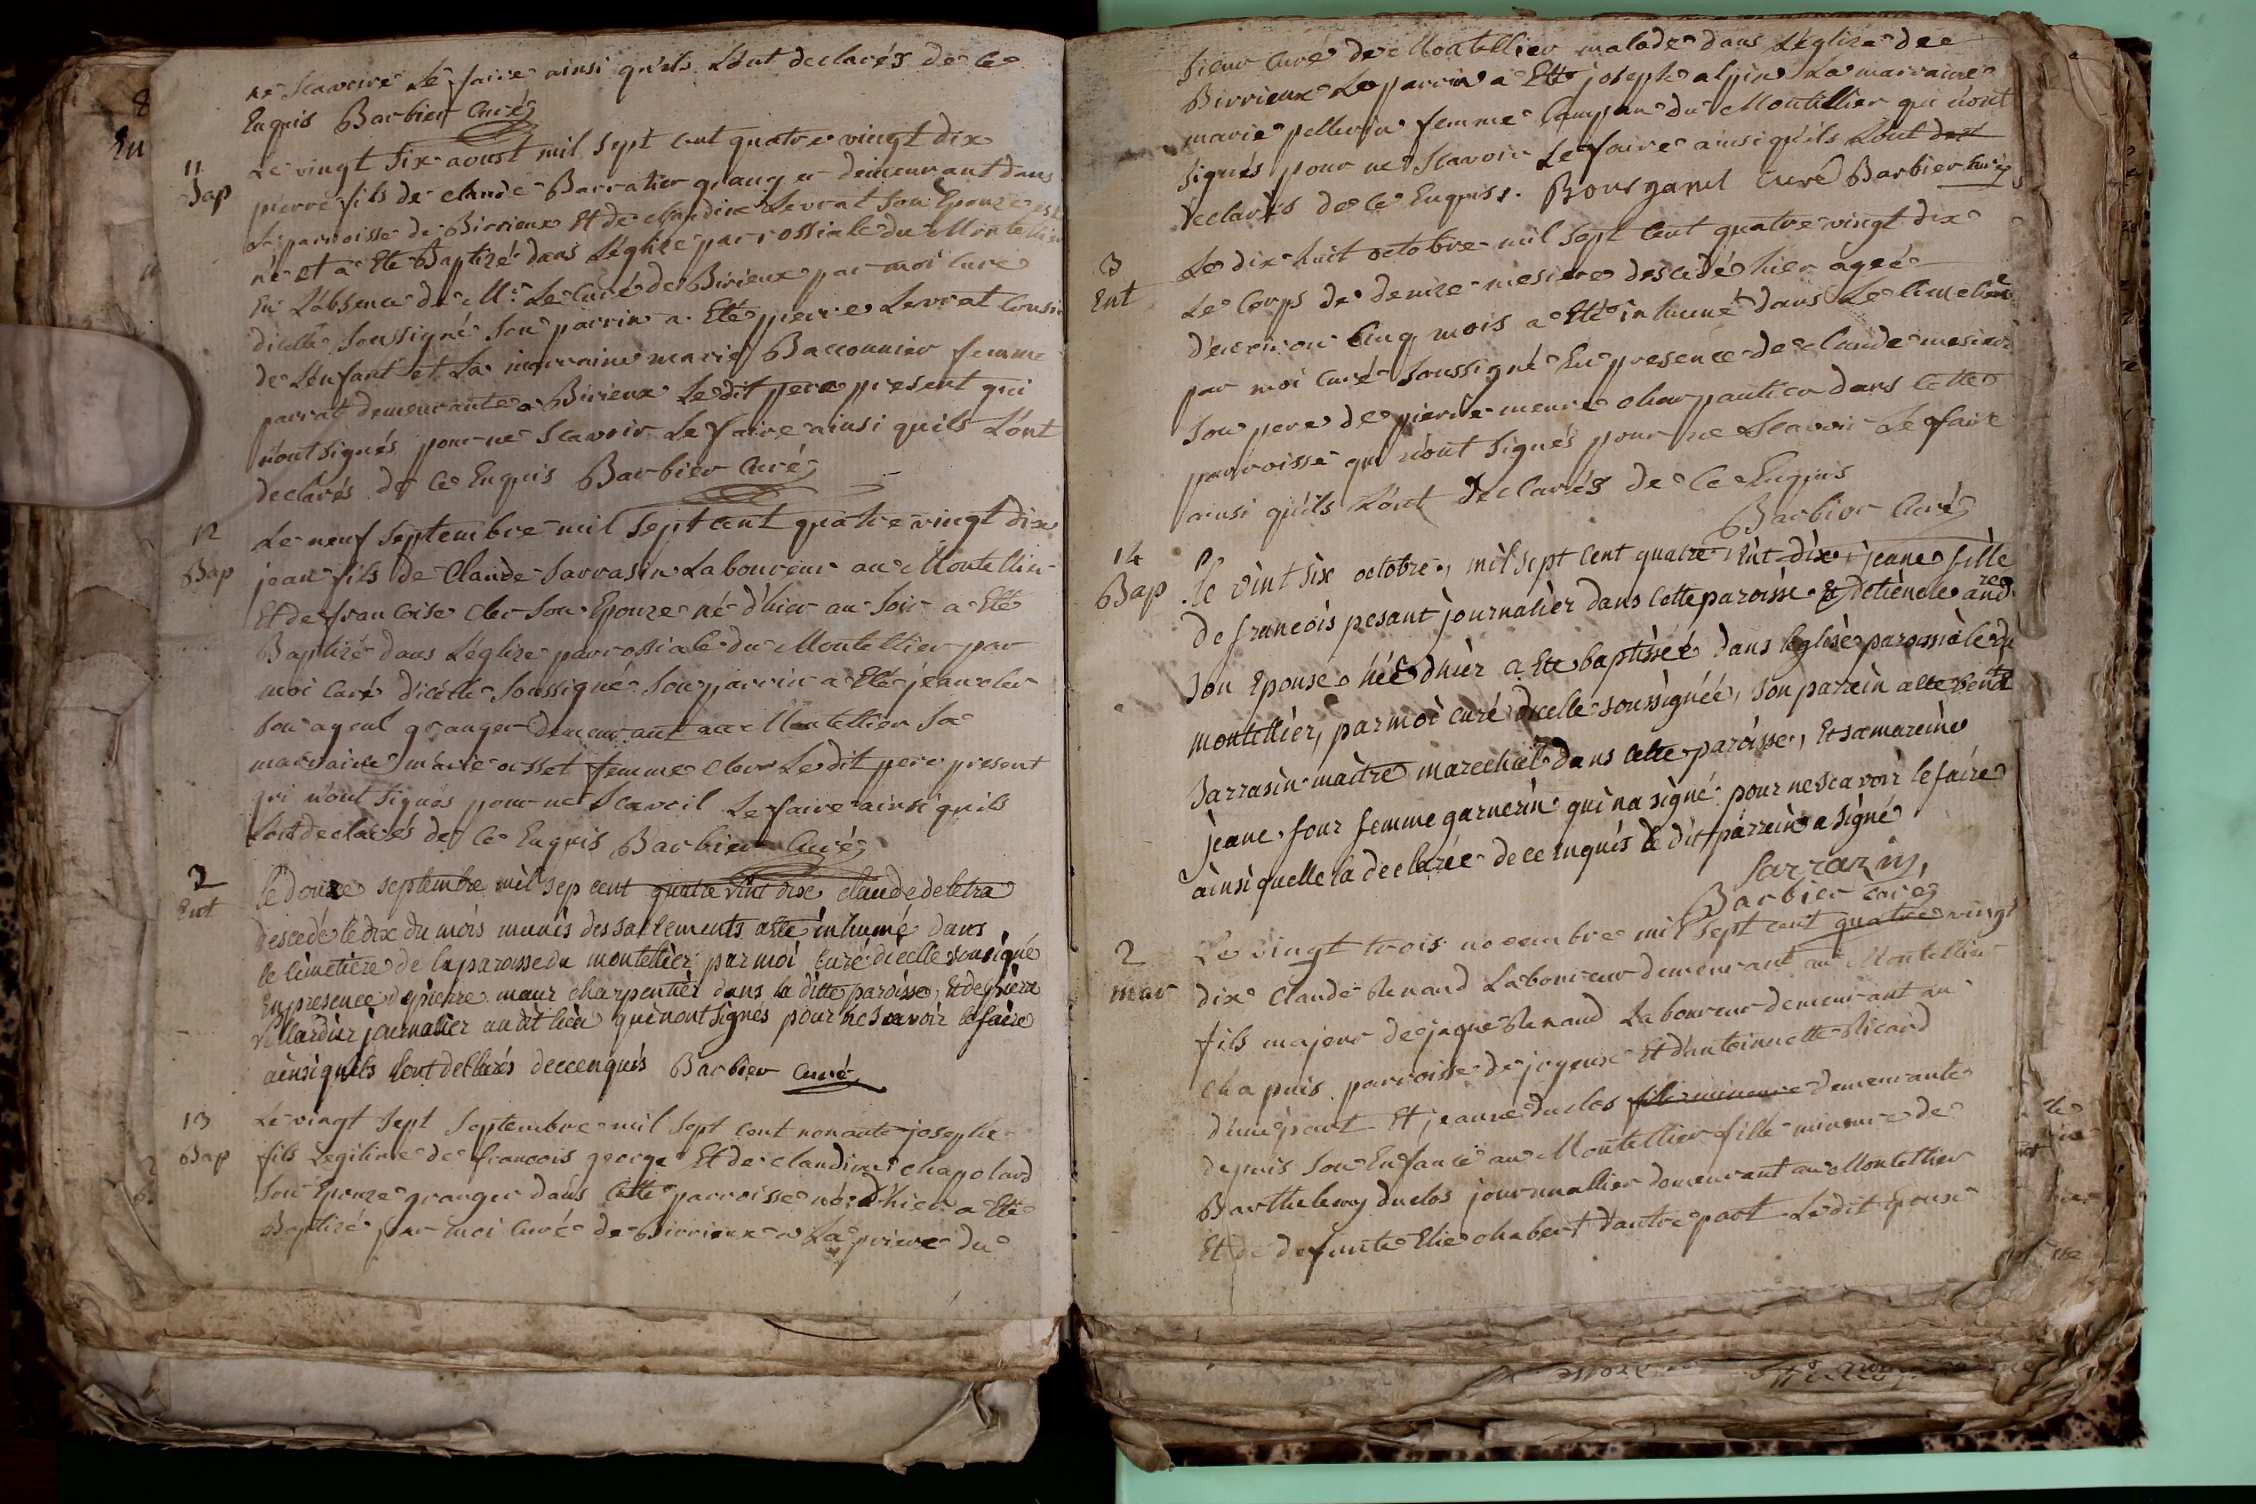 ne scavoire Le faire ainsi qu'ils L'ont declarés de ce
Enquis Barbier Curé
11
Bap
Le vingt six aoust mil sept cent quatre vingt dix
pierre fils de claude Barratier granger demeurant dans
la parroisse de Birrieux Et de claudine Levrat son Epouze est
né et a Eté Baptizé dans L'église parrossiale du Montellier
En L'absence de Mr Le Curé de Birieux par moi Curé
dicelle soussigné son parrin a Eté pierre Levrat Cousin
de L'enfant et La marraine marie Baconnier femme
parrat demeurante a Birieux Le dit pere present qui
n'ont signés pour ne scavoir Le faire ainsi quils L'ont
declarés de ce Enquis Barbier Curé
12
Bap
Le neuf septembre mil sept cent quatre vingt dix
jean fils de Claude Sarrasin Laboureur au Montellier
Et de francoise cler son Epouze né d'hier au soir a Eté
Baptizé dans L'églize parrossiale du Montellier par
moi Curé dicelle soussigné son parrin a Eté jean cler
son ayeul granger demeurant au Montellier sa
marraine marie osset femme cler Le dit pere present
qui n'ont signés pour ne scavoil Le faire ainsi quils
L'ont declarés de ce Enquis Barbier Curé
2
Ent
le douze septembre mil sep cent quatre vint dix claude deletra
descedé le dix du mois munis des sacrements a eté inhumé dans
le cimetiere de la paroisse du montellier par moi curé dicelle sousigné
En presence de pierre meur charpentier dans la ditte paroisse, Et de pierre
villardier journalier audit lieu qui nont signés pour ne scavoir le faire
ainsi quils lont dellarés de ce enquis Barbier curé
13
Bap
Le vingt sept septembre mil sept cent nonante joseph
fils Legitime de francois george Et de claudine chapolard
son Epouze granger dans cette parroisse né d'hier a Eté
Baptizé par moi Curé de Birrieux a La priere du
sieur Curé de Montellier malade dans L'églize de
Birrieux Le parrin a Eté joseph alpin La marraine
marie pellerin femme Campan du Montellier qui n'ont
signés pour ne scavoir Le faire ainsi qu'ils L'ont de
declarés de ce Enquis. Bourgarel Curé Barbier Curé
3
Ent
Le dix huit octobre mil sept cent quatre vingt dix
Le Corps de denize mesiere descedé hier ageé
d'environ cinq mois a Eté inhumé dans Le cimetiere
par moi Curé soussigné En presence de claude mesiere
son pere de pierre meure charpantier dans cette
parroisse qui n'ont signés pour ne scavoir Le faire
ainsi qu'ils L'ont declarés de ce Enquis
Barbier Curé
14
Bap
le vint six octobre, mil sept cent quatre vint dix, jeane fille
de francois pesant journalier dans cette paroisse Et detienete andre
son Epouse née dhier a Eté baptissée dans léglise paroissiale du
montellier, par moi curé dicelle soussignée, son parrein a ete benoit
Sarrasin maitre marechal dans cette paroisse, Et sa mareine
jeane four femme garnerin qui na signé pour ne scavoir le faire
ainsi quelle la declarée de ce enquis le dit parrein a signé
Sarrazin,
Barbier Curé
2
mar
Le vingt trois novembre mil sept cent quatre vingt
dix Claude Renard Laboureur demeurant au Montellier
fils majeur de jaque Renaud Laboureur demeurant au
Chapuis parroisse de joyeux Et d'antoinette Ricard
d'une part Et jeanne duclos fille mineure demeurante
depuis son Enfance au Montellier fille mineure de
Barthelemy duclos journallier demeurant au Montellier
Et de defunte Elie chabert d'autre part Le dit Epoux